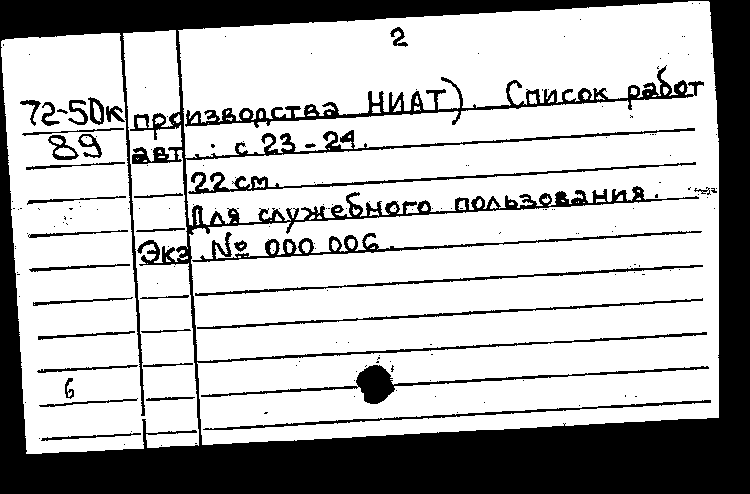 2
72-50к производства НИАТ). Список работ
89 авт.: с. 23-24.
22 см.
Для служебного пользования.
Экз. № 000 006.
6